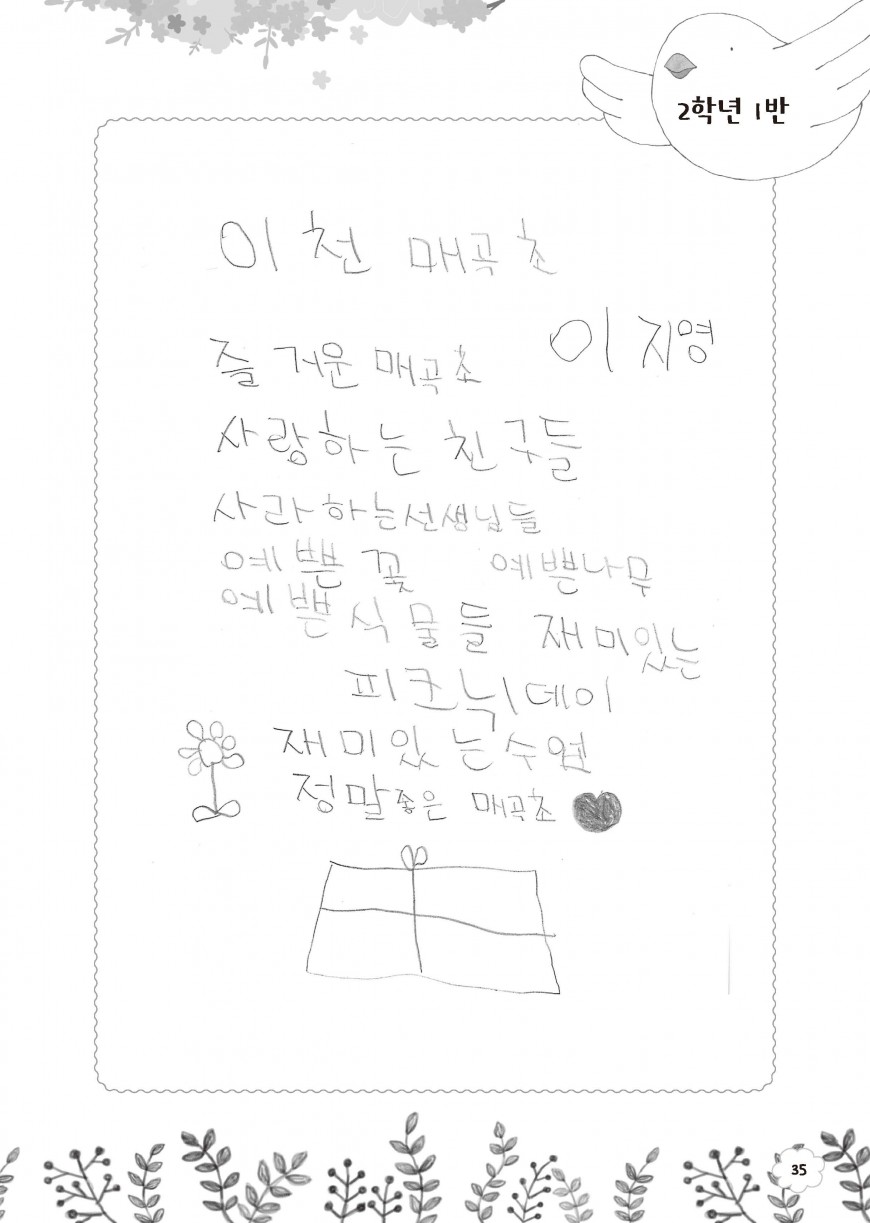 2학년 1반
이천 매곡초
이지영
즐거운 매곡초
사랑하는 친구들
사라하는선생님들
예쁜 꽃 예쁜나무
예쁜식물들 재미있는
피크닉데이
재미있는수업
정말좋은 매곡초
35